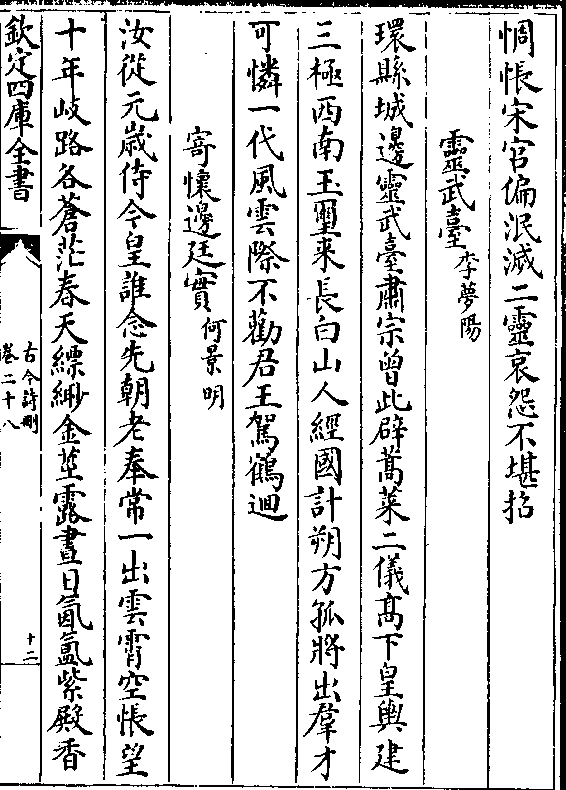 惆悵宋官偏泯滅二靈哀怨不堪招
靈武臺李夢陽
環縣城邊靈武臺肅宗曾此辟蒿萊二儀髙下皇輿建
三極西南玉璽来長白山人經國計朔方孤將出羣才
可憐一代風雲際不勸君王駕鶴迴
寄懷邊廷實何景明
汝從元歲侍今皇誰念先朝老奉常一出雲霄空悵望
十年岐路各蒼茫春天縹緲金莖露晝日氤氳紫殿香
欽定四庫全書
古今詩刪
卷二十八
十二